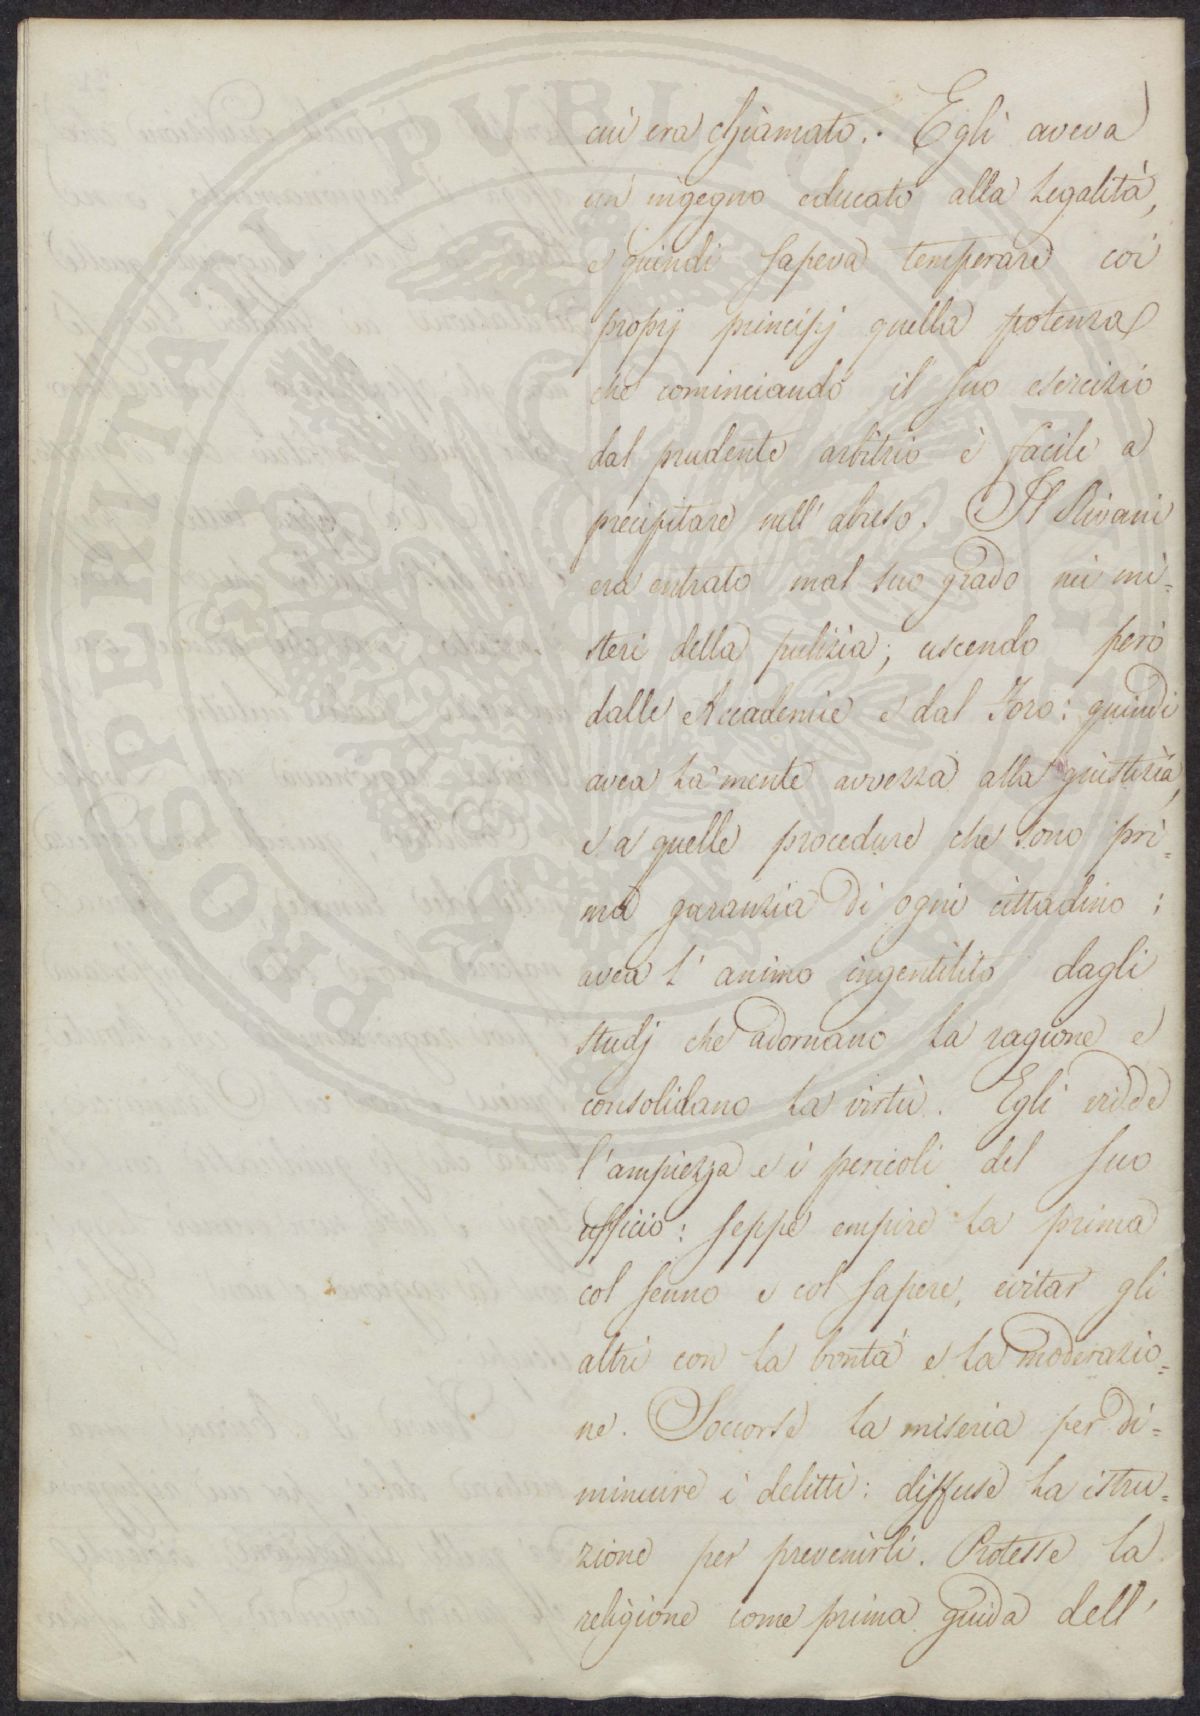 cui era chiamato. Egli aveva
un' ingegno educato alla legalità,
e quindi sapeva temperare coi
proprj principj quella potenza
che cominciando il suo esercizio
dal prudente arbitrio è facile a
precipitare nell' abuso. Il Olivani
era entrato mal suo grado nei mi=
steri della pulizia; uscendo però
dalle Accademie e dal Foro: quindi
avea la mente avvezza alla giustizia,
e a quelle procedure che sono pri=
ma garanzia di ogni cittadino:
avea l' animo ingentilito dagli
studj che adornano la ragione e
consolidano la virtù. Egli vidde
l'ampiezza e i pericoli del suo
ufficio: seppe empire la prima
col senno e col sapere, evitar gli
altri con la bontà e la moderazio=
ne. Soccorse la miseria per di=
minuire i delitti: diffuse la istru=
zione per prevenirli. Protesse la
religione come prima guida dell'
PROSPERITATI PUBLICAE AUGENDAE